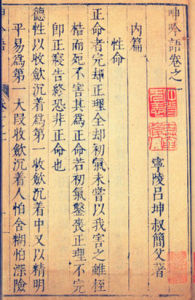 呻吟語卷之一
寧陵呂坤叔簡父著
內篇
性命
正命者完却正理全却初氣未嘗以我害之雖桎
梏而死不害其為正命若初氣鑿喪正理不完
即正寢告終恐非正命也
德性以收斂沉着為第一收斂沉着中又以精明
平易為第一大段收斂沉着人怕含糊怕深險